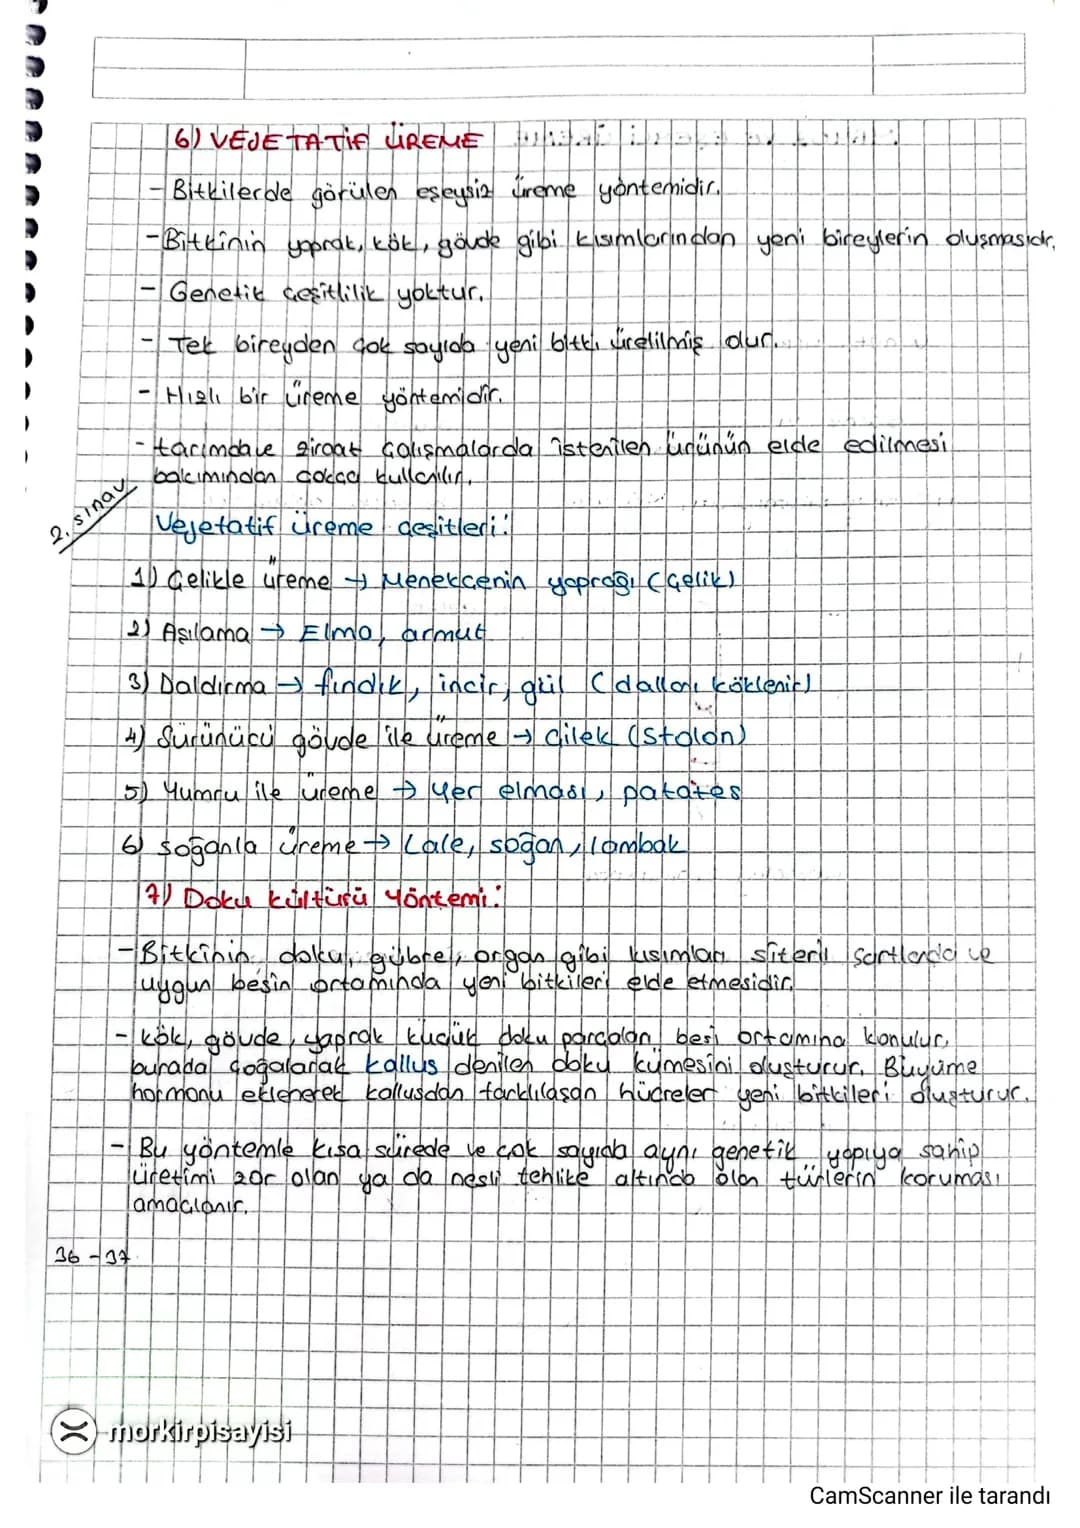 6) VEJETATİF ÜREME
- Bitkilerde görülen eşeysiz üreme yöntemidir.
- Bitkinin yaprak, kök, gövde gibi kısımlarından yeni bireylerin oluşmasıdır.
- Genetik çeşitlilik yoktur.
- Tek bireyden çok sayıda yeni bitki üretilmiş olur.
- Hızlı bir üreme yöntemidir.
- tarımda ve ziraat çalışmalarda istenilen ürünün elde edilmesi
bakımından çokça kullanılır.
2. sınav
Vejetatif üreme çeşitleri:
1) Çelikle üreme → Menekçenin yaprağı (Çelik)
2) Aşılama → Elma, armut
3) Daldırma → fındık, incir, gül (dalları köklenir)
4) Sürünücü gövde ile üreme → çilek (Stolon)
5) Yumru ile üreme → Yer elması, patates
6) soğanla üreme → Lale, soğan, lambak
7) Doku kültürü Yöntemi:
- Bitkinin doku, gübre, organ gibi kısımları siteril şartlarda ve
uygun besin ortamında yeni bitkileri elde etmesidir.
- kök, gövde, yaprak küçük doku parçaları besi ortamına konulur,
burada çoğalarak kallus denilen doku kümesini oluşturur. Büyüme
hormonu eklenerek kallusdan farklılaşan hücreler yeni bitkileri oluşturur.
- Bu yöntemle kısa sürede ve çok sayıda aynı genetik yapıya sahip
üretimi zor olan ya da nesli tehlike altında olan türlerin koruması
amaçlanır.
36 - 37
morkirpisayisi
CamScanner ile tarandı